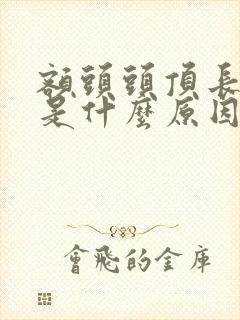 額頭頭頂長
是什麼原因
會飛的金庫